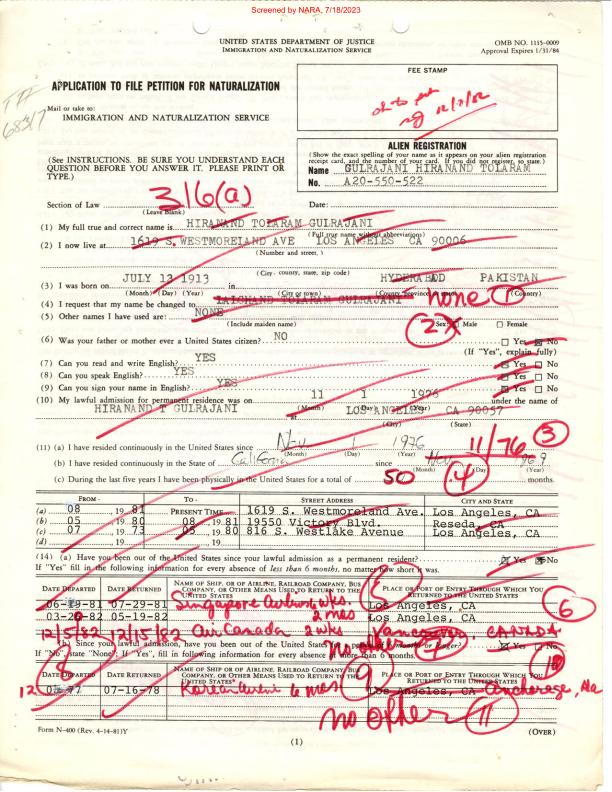 Screened by NARA, 7/18/2023
UNITED STATES DEPARTMENT OF JUSTICE
IMMIGRATION AND NATURALIZATION SERVICE
OMB NO. 1115-0009
Approval Expires 1/31/84
APPLICATION TO FILE PETITION FOR NATURALIZATION
FEE STAMP
12/7/82
Mail or take to:
IMMIGRATION AND NATURALIZATION SERVICE
ALIEN REGISTRATION
(Show the exact spelling of your name as it appears on your alien registration
receipt card, and the number of your card. If you did not register, so state.)
(See INSTRUCTIONS. BE SURE YOU UNDERSTAND EACH
QUESTION BEFORE YOU ANSWER IT. PLEASE PRINT OR
TYPE.)
Name GULRAJANI HIRANAND TOLARAM
No. A20-550-522
316(a)
Section of Law
(Leave Blank)
Date:
(1) My full true and correct name is HIRANAND TOLARAM GULRAJANI
(Full true name without abbreviations)
(2) I now live at 1619 S. WESTMORELAND AVE LOS ANGELES CA 90006
(Number and street,)
(City, county, state, zip code)
(3) I was born on JULY 13 1913 in HYDERABAD PAKISTAN
(Month) (Day) (Year) (City or town) (County, Province or State) (Country)
(4) I request that my name be changed to LALCHAND TOLARAM GULRAJANI none 1
(5) Other names I have used are: NONE
(Include maiden name)
2 X Sex: Male Female
(6) Was your father or mother ever a United States citizen? NO Yes No
(If "Yes", explain fully)
(7) Can you read and write English? YES Yes No
(8) Can you speak English? YES Yes No
(9) Can you sign your name in English? YES Yes No
(10) My lawful admission for permanent residence was on 11 1 1976 under the name of
(Month) (Day) (Year)
HIRANAND T GULRAJANI at LOS ANGELES CA 90057
(City) (State)
(11) (a) I have resided continuously in the United States since Nov 1 1976 11/76 3
(Month) (Day) (Year)
(b) I have resided continuously in the State of California since Nov
(Month) (Day) (Year)
(c) During the last five years I have been physically in the United States for a total of 50 4 months.
FROM - TO - STREET ADDRESS CITY AND STATE
(a) 08, 19 81 PRESENT TIME 1619 S. Westmoreland Ave. Los Angeles, CA
(b) 05, 19 80 08, 19 81 19550 Victory Blvd. Reseda, CA
(c) 07, 19 73 05, 19 80 816 S. Westlake Avenue Los Angeles, CA
(d) , 19 , 19
(14) (a) Have you been out of the United States since your lawful admission as a permanent resident? Yes No
If "Yes" fill in the following information for every absence of less than 6 months, no matter how short it was.
DATE DEPARTED DATE RETURNED NAME OF SHIP, OR OF AIRLINE, RAILROAD COMPANY, BUS COMPANY, OR OTHER MEANS USED TO RETURN TO THE UNITED STATES PLACE OR PORT OF ENTRY THROUGH WHICH YOU RETURNED TO THE UNITED STATES
07-29-81 Singapore Los Angeles, CA 6
05-19-82 2 mos Los Angeles, CA
12/5/82 12/15/82 Air Canada 2 wks Vancouver, CANADA
(b) Since your lawful admission, have you been out of the United States for a period of 6 months or longer? Yes No
If "No", state "None"; If "Yes", fill in following information for every absence of more than 6 months.
8 9 10
DATE DEPARTED DATE RETURNED NAME OF SHIP, OR OF AIRLINE, RAILROAD COMPANY, BUS COMPANY, OR OTHER MEANS USED TO RETURN TO THE UNITED STATES PLACE OR PORT OF ENTRY THROUGH WHICH YOU RETURNED TO THE UNITED STATES
12 07-16-78 Korean 6 mos Los Angeles, CA Anchorage,
no other 11
Form N-400 (Rev. 4-14-81)Y
(1)
(OVER)